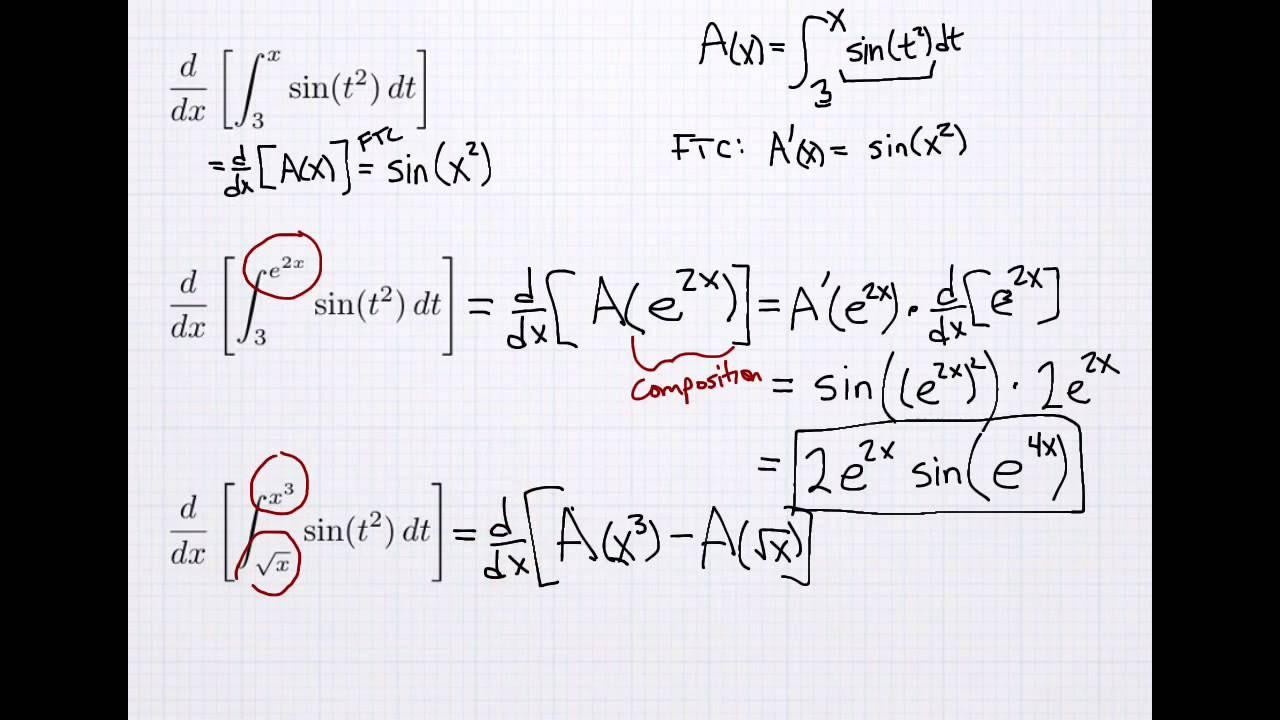 d/dx [∫₃ˣ sin(t²) dt]
= d/dx [A(x)] =^FTC sin(x²)
A(x) = ∫₃ˣ sin(t²)dt
FTC: A'(x) = sin(x²)
d/dx [∫₃^(e^(2x)) sin(t²) dt] = d/dx [A(e^(2x))] = A'(e^(2x)) · d/dx [e^(2x)]
composition
= sin((e^(2x))²) · 2e^(2x)
= 2e^(2x) sin(e^(4x))
d/dx [∫_(√x)^(x³) sin(t²) dt] = d/dx [A(x³) − A(√x)]